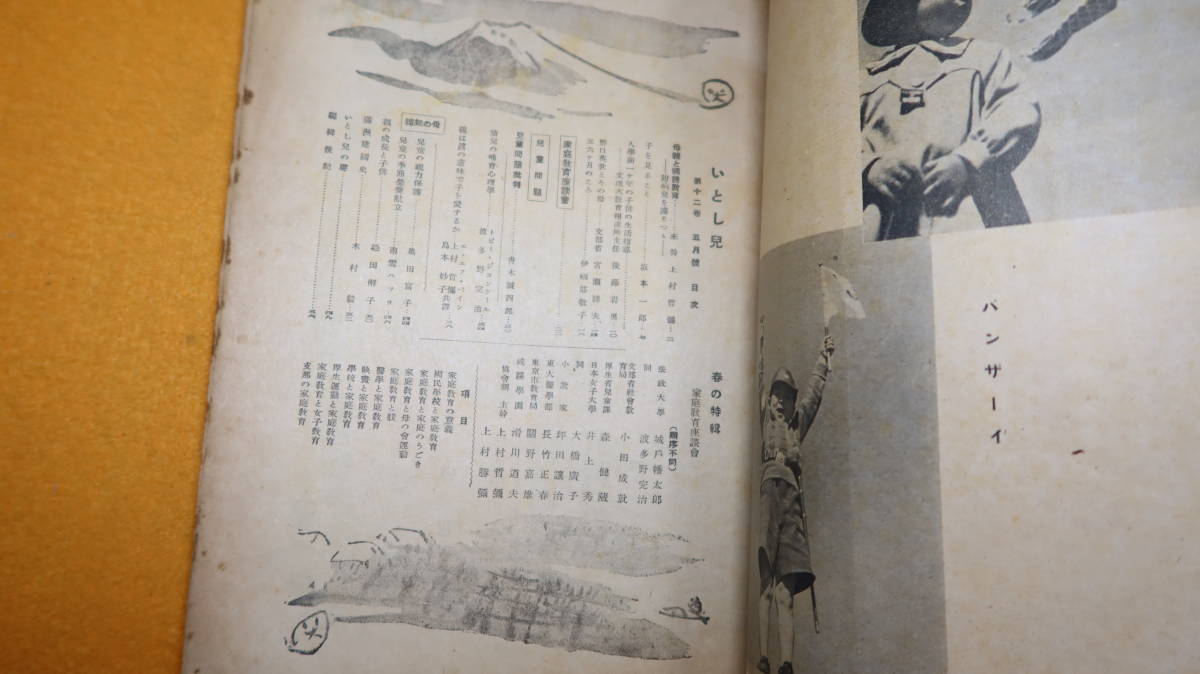 バンザーイ
いとし兒
第十二卷 五月號 目次
母親と國語教育……主幹 上村哲彌…二
子を見ること……坂本一郎…七
入學前一ケ年の子供の生活指導
文理大教育相談所主任 後藤岩男…一〇
野口英世とその母……文部省
五六ケ月のころ……伊福部敬子…一八
家庭教育座談會
兒童問題
兒童問題批判……青木誠四郎
幼兒の唯育心理學
波多野完治
親は眞の意味で子を愛するか
上村哲彌
島本妙子 共譯
母の知識
兒童の視力保護
兒童の季節榮養獻立
親の成長と子供
滿洲建國史……木村毅
いとし兒の聲
編輯後記
春の特輯
家庭教育座談會
(順序不同)
法政大學 城戶幡太郎
同 波多野完治
文部省社會教育局 小田成就
厚生省兒童課 森健藏
日本女子大學 井上秀
同 大橋廣子
小說家 坪田讓治
東大醫學部 長竹正春
東京市教育局 關野嘉雄
成蹊學園 滑川道夫
協會側 主幹 上村哲彌
上村勝彌
項目
家庭教育の意義
國民學校と家庭教育
家庭教育と家庭のうごき
家庭教育と母の會運動
家庭教育と躾
醫學と家庭教育
映畫と家庭教育
學校と家庭教育
厚生運動と家庭教育
家庭教育と女子教育
支那の家庭教育